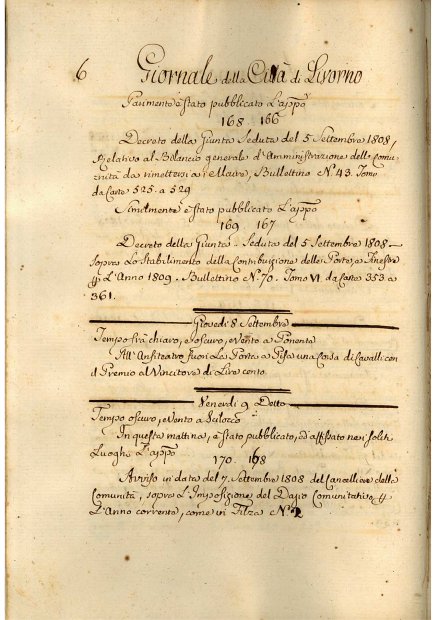 6 Giornale della Città di Livorno
Parimente è stato pubblicato L'appo
168 166
Decreto della Giunta Seduta del 5 Settembre 1808,
Relativo al Bilancio generale d'Amministrazione delle Comu-
nità da rimettersi ai Maires, Bullettino N. 43. Tomo
da Carte 525. a 529
Similmente è stato pubblicato L'appo
169 167
Decreto della Giunta Seduta del 5 Settembre 1808
sopra Lo Stabilimento della Contribuzione delle Porte, e Finestre
L'Anno 1809. Bullettino N. 70. Tomo VI. da Carte 353 a
361.
Giovedì 8 Settembre
Tempo frà chiaro, e oscuro, e Vento a Ponente
All' Anfiteatro fuori La Porta a Pisa una Corsa di Cavalli con
il Premio al Vincitore di Lire cento.
Venerdì 9 Detto
Tempo oscuro, e Vento a Scilocco
In questa mattina, è stato pubblicato, ed affissato nei soliti
Luoghi L'appo
170. 168
Avviso in data del 7. Settembre 1808 del Cancelliere della
Comunità, sopra L'Imposizione del Dazio Comunitativo
L'Anno corrente, come in Filza N. 2